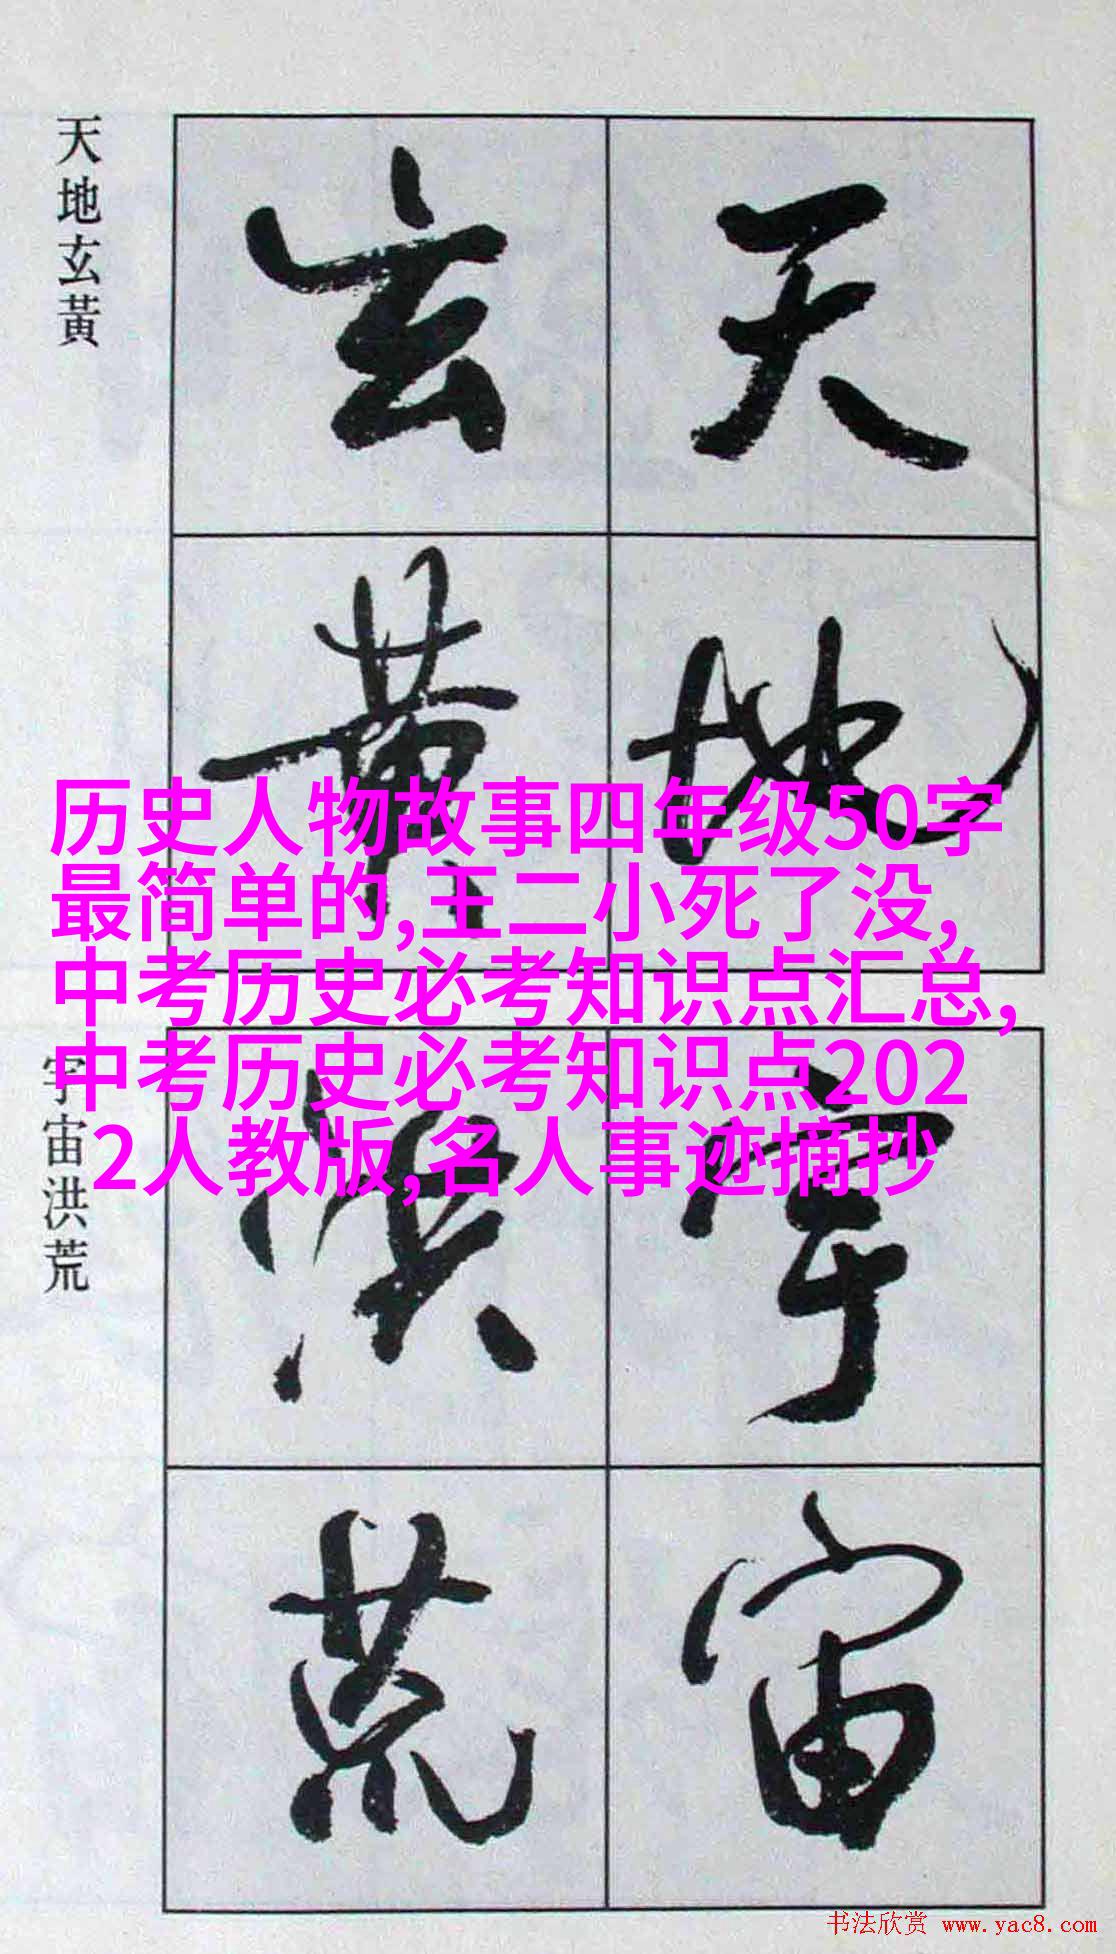 天地玄黃
天
地
玄
黄
历史人物故事四年级50字
最简单的,王二小死了没,
中考历史必考知识点汇总,
中考历史必考知识点202
2人教版,名人事迹摘抄
宇宙洪荒
宇
宙
洪
荒
书法欣赏 www.yac8.com